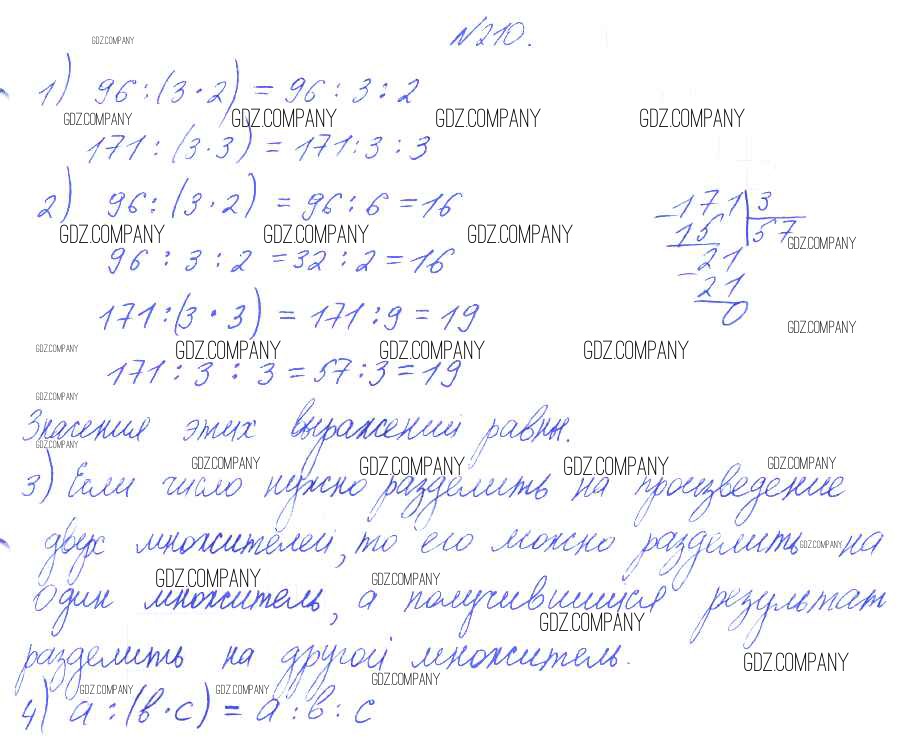 №210.
GDZ.COMPANY
1) 96 : (3 · 2) = 96 : 3 : 2
GDZ.COMPANY GDZ.COMPANY GDZ.COMPANY GDZ.COMPANY
171 : (3 · 3) = 171 : 3 : 3
2) 96 : (3 · 2) = 96 : 6 = 16
171 | 3
GDZ.COMPANY GDZ.COMPANY GDZ.COMPANY
15 | 57
GDZ.COMPANY
96 : 3 : 2 = 32 : 2 = 16
21
21
0
171 : (3 · 3) = 171 : 9 = 19
GDZ.COMPANY
GDZ.COMPANY GDZ.COMPANY GDZ.COMPANY GDZ.COMPANY
171 : 3 : 3 = 57 : 3 = 19
GDZ.COMPANY
Значения этих выражений равны.
GDZ.COMPANY
GDZ.COMPANY GDZ.COMPANY GDZ.COMPANY GDZ.COMPANY
3) Если число нужно разделить на произведение
двух множителей, то его можно разделить на
GDZ.COMPANY
GDZ.COMPANY GDZ.COMPANY
один множитель, а получившийся результат
GDZ.COMPANY
разделить на другой множитель.
GDZ.COMPANY
GDZ.COMPANY
GDZ.COMPANY GDZ.COMPANY
4) а : (в · с) = а : в : с